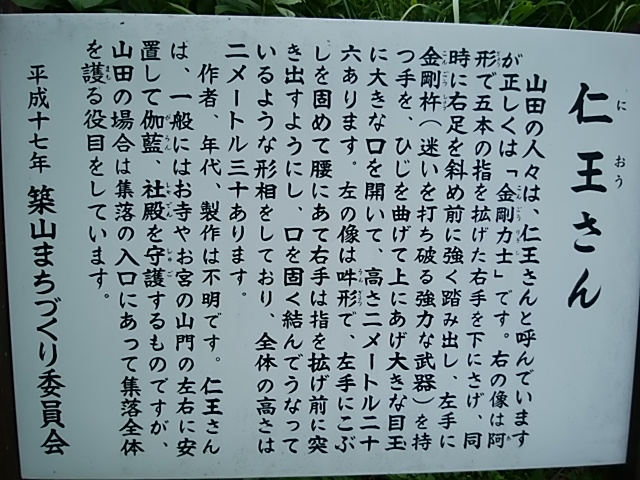 仁王さん
におう
山田の人々は、仁王さんと呼んでいます
が正しくは「金剛力士」です。右の像は阿
形で五本の指を拡げた右手を下にさげ、同
時に右足を斜め前に強く踏み出し、左手に
金剛杵(迷いを打ち破る強力な武器)を持
つ手を、ひじを曲げて上にあげ大きな目玉
に大きな口を開いて、高さ二メートル二十
六あります。左の像は吽形で、左手にこぶ
しを固めて腰にあて右手は指を拡げ前に突
き出すようにし、口を固く結んでうなって
いるような形相をしており、全体の高さは
二メートル三十あります。
作者、年代、製作は不明です。仁王さん
は、一般にはお寺やお宮の山門の左右に安
置して伽藍、社殿を守護するものですが、
山田の場合は集落の入口にあって集落全体
を護る役目をしています。
平成十七年 築山まちづくり委員会